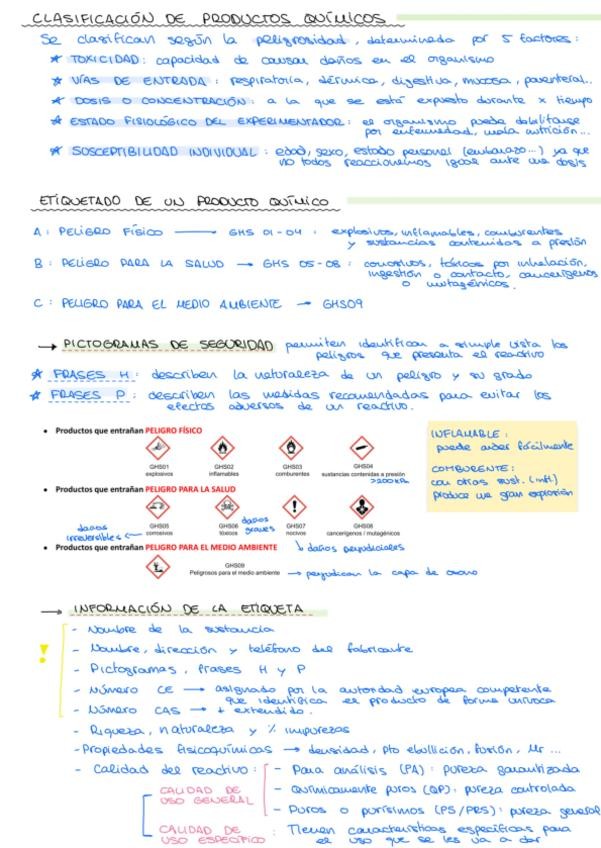 CLASIFICACIÓN DE PRODUCTOS QUÍMICOS
Se clasifican según la peligrosidad, determinada por 5 factores:
* TOXICIDAD: capacidad de causar daños en el organismo
* VÍAS DE ENTRADA: respiratoria, dérmica, digestiva, mucosa, parenteral...
* DOSIS O CONCENTRACIÓN: a la que se está expuesto durante x tiempo
* ESTADO FISIOLÓGICO DEL EXPERIMENTADOR: el organismo puede debilitarse
por enfermedad, mala nutrición...
* SUSCEPTIBILIDAD INDIVIDUAL: edad, sexo, estado personal (embarazo...) ya que
no todos reaccionamos igual ante una dosis
ETIQUETADO DE UN PRODUCTO QUÍMICO
A: PELIGRO FÍSICO → GHS 01-04: explosivos, inflamables, comburentes
y sustancias contenidas a presión
B: PELIGRO PARA LA SALUD → GHS 05-08: corrosivos, tóxicos por inhalación,
ingestión o contacto, cancerígenos
o mutagénicos.
C: PELIGRO PARA EL MEDIO AMBIENTE → GHS09
→ PICTOGRAMAS DE SEGURIDAD permiten identificar a simple vista los
peligros que presenta el reactivo
* FRASES H: describen la naturaleza de un peligro y su grado
* FRASES P: describen las medidas recomendadas para evitar los
efectos adversos de un reactivo.
• Productos que entrañan PELIGRO FÍSICO
GHS01 GHS02 GHS03 GHS04
explosivos inflamables comburentes sustancias contenidas a presión
>200KPa
INFLAMABLE:
puede arder fácilmente
COMBURENTE:
con otras sust. (infl.)
produce una gran explosión
• Productos que entrañan PELIGRO PARA LA SALUD
GHS05 GHS06 GHS07 GHS08
corrosivos tóxicos nocivos cancerígenos / mutagénicos
daños irreversibles ←
daños graves
↳ daños perjudiciales
• Productos que entrañan PELIGRO PARA EL MEDIO AMBIENTE
GHS09
Peligrosos para el medio ambiente → perjudican la capa de ozono
→ INFORMACIÓN DE LA ETIQUETA
- Nombre de la sustancia
! - Nombre, dirección y teléfono del fabricante
- Pictogramas, frases H y P
- Número CE → asignado por la autoridad europea competente
que identifica el producto de forma unívoca
- Número CAS → + extendido.
- Riqueza, naturaleza y % impurezas
- Propiedades fisicoquímicas → densidad, pto ebullición, fusión, Mr ...
- Calidad del reactivo: - Para análisis (PA): pureza garantizada
CALIDAD DE USO GENERAL - Químicamente puros (QP): pureza controlada
- Puros o purísimos (PS/PRS): pureza general
CALIDAD DE USO ESPECÍFICO: Tienen características específicas para
el uso que se les va a dar